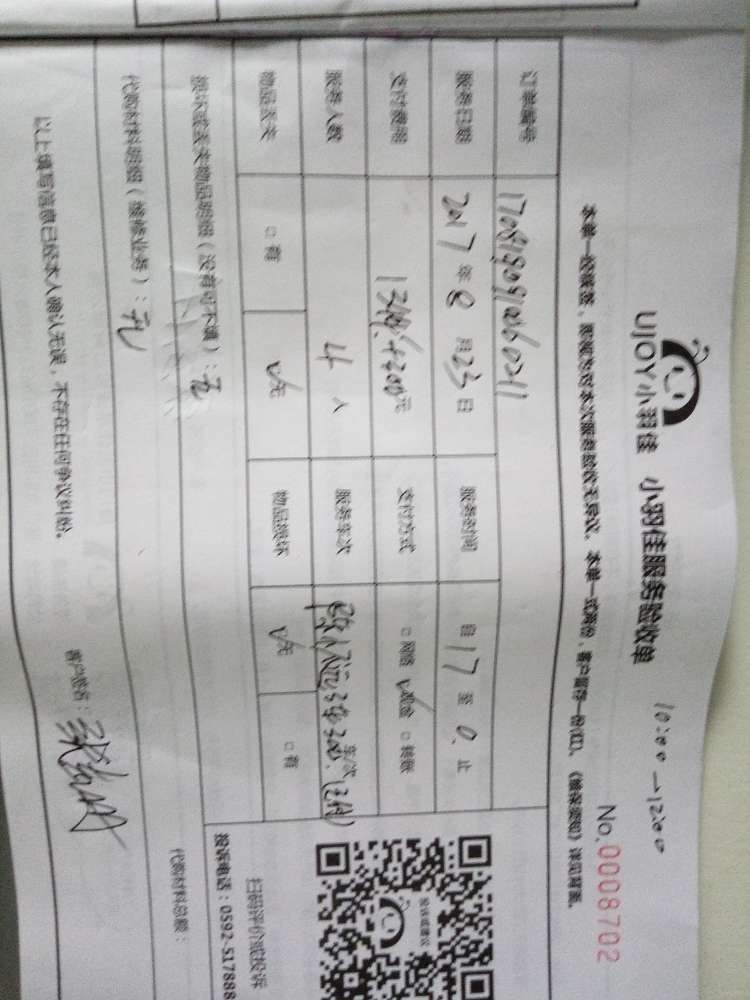 10:00→12:00
UJOY小羽佳 小羽佳服务验收单
No.0008702
本单一经签签，即视为对本次服务验收无异议。本单一式两份，客户留存一份(红)，《维保须知》详见背面。
订单编号
服务日期 2017年8月23日 服务时间 自17至0.止
支付费用 元 支付方式 □网络 √现金 □转账
服务人数 4人 服务车次 车/次
物品丢失 □有 √无 物品损坏 √无 □有
损坏或丢失物品明细（没有可不填）：无
代购材料明细（维修业务）：无
代购材料总额：
以上填写信息已经本人确认无误，不存在任何争议纠纷。
客户签名：
投诉或建议
扫码评价或投诉
投诉电话：0592-517888